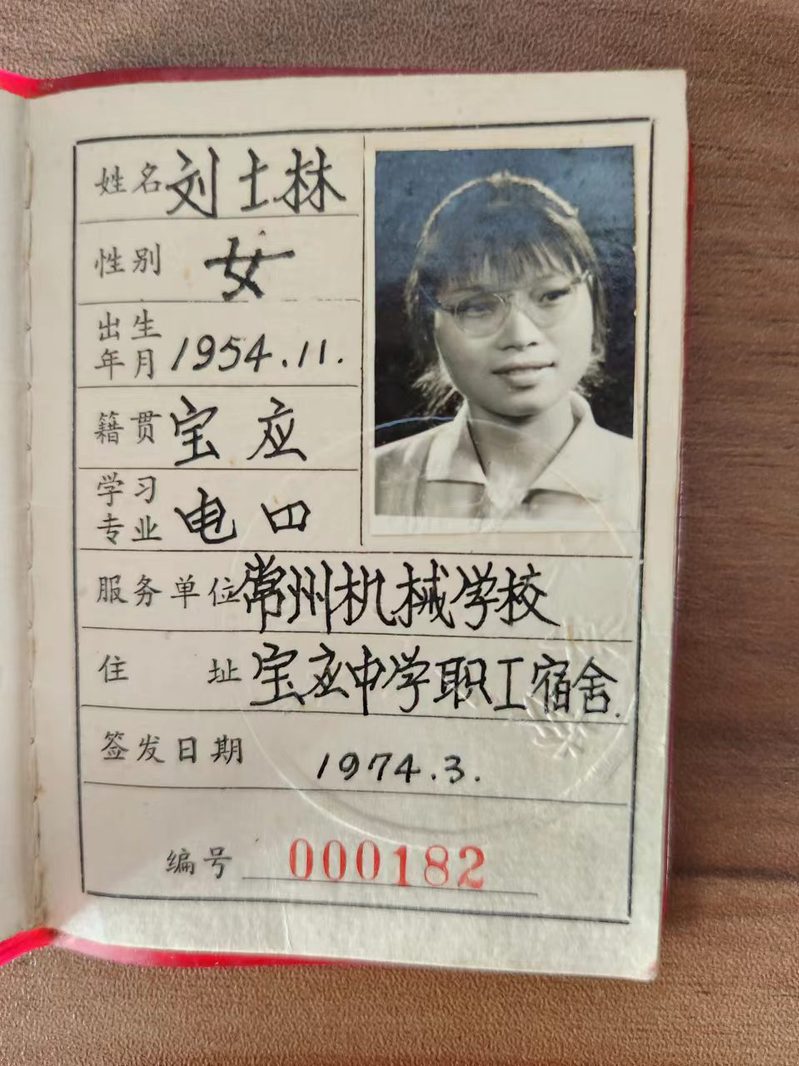 姓名 刘士林
性别 女
出生年月 1954.11.
籍贯 宝应
学习专业 电四
服务单位 常州机械学校
住址 宝应中学职工宿舍.
签发日期 1974.3.
编号 000182